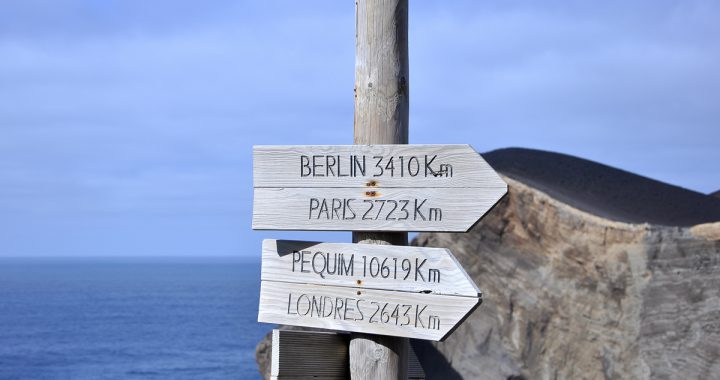 BERLIN 3410 Km
PARIS 2723 Km
PEQUIM 10619 Km
LONDRES 2643 Km